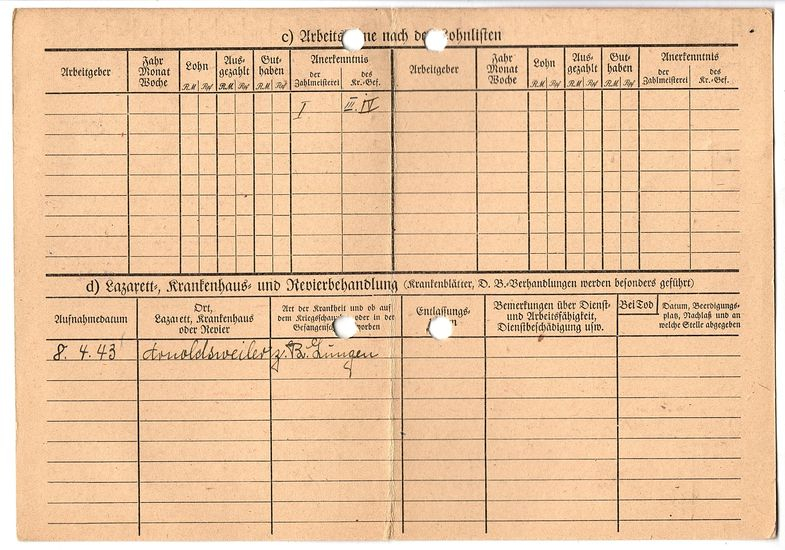 c) Arbeits ne nach de ohnlisten
Arbeitgeber Jahr Monat Woche Lohn Aus- gezahlt Gut- haben Anerkenntnis Arbeitgeber Jahr Monat Woche Lohn Aus- gezahlt Gut- haben Anerkenntnis
der Zahlmeisterei des Kr.-Gef. der Zahlmeisterei des Kr.-Gef.
RM Rpf RM Rpf RM Rpf RM Rpf RM Rpf RM Rpf
I III. IV
d) Lazarett-, Krankenhaus- und Revierbehandlung (Krankenblätter, D. B.-Verhandlungen werden besonders geführt)
Aufnahmedatum
Ort,
Lazarett, Krankenhaus
oder Revier
Art der Krankheit und ob auf
dem Kriegsschaup oder in der
Gefangensch orben
Entlassungs-
en
Bemerkungen über Dienst-
und Arbeitsfähigkeit,
Dienstbeschädigung usw.
Bei Tod
Datum, Beerdigungs-
platz, Nachlaß und an
welche Stelle abgegeben
8. 4. 43 Arnoldsweiler z. B. Lungen